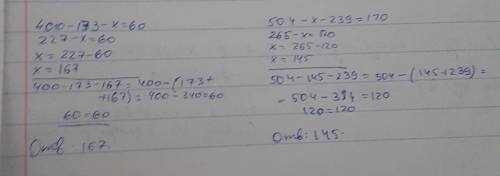 400-173-x=60
227-x=60
x=227-60
x=167
400-173-167=400-(173+
+167)=400-340=60
60=60
Отв: 167.
504-x-239=120
265-x=120
x=265-120
x=145
504-145-239=504-(145+239)=
=504-384=120
120=120
Отв: 145.